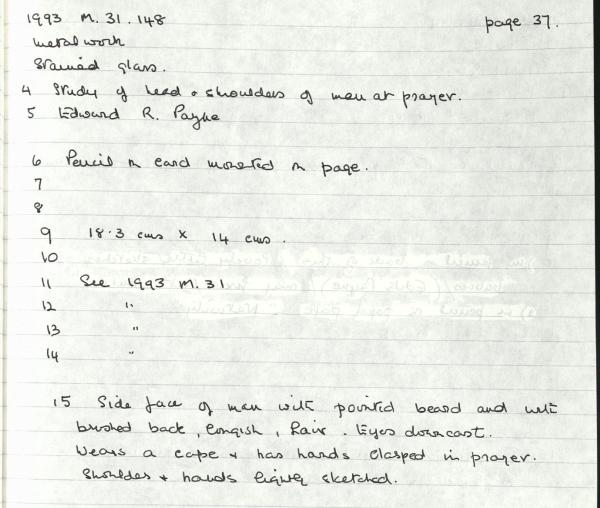 1993 M.31.148 page 37.
metalwork
Stained glass.
4 Study of head & shoulders of man at prayer.
5 Edward R. Payne
6 Pencil on card mounted on page.
7
8
9 18.3 cms x 14 cms.
10
11 See 1993 M.31
12 "
13 "
14 "
15 Side face of man with pointed beard and with
brushed back, longish, hair. Eyes downcast.
Wears a cape & has hands clasped in prayer.
Shoulders & hands lightly sketched.